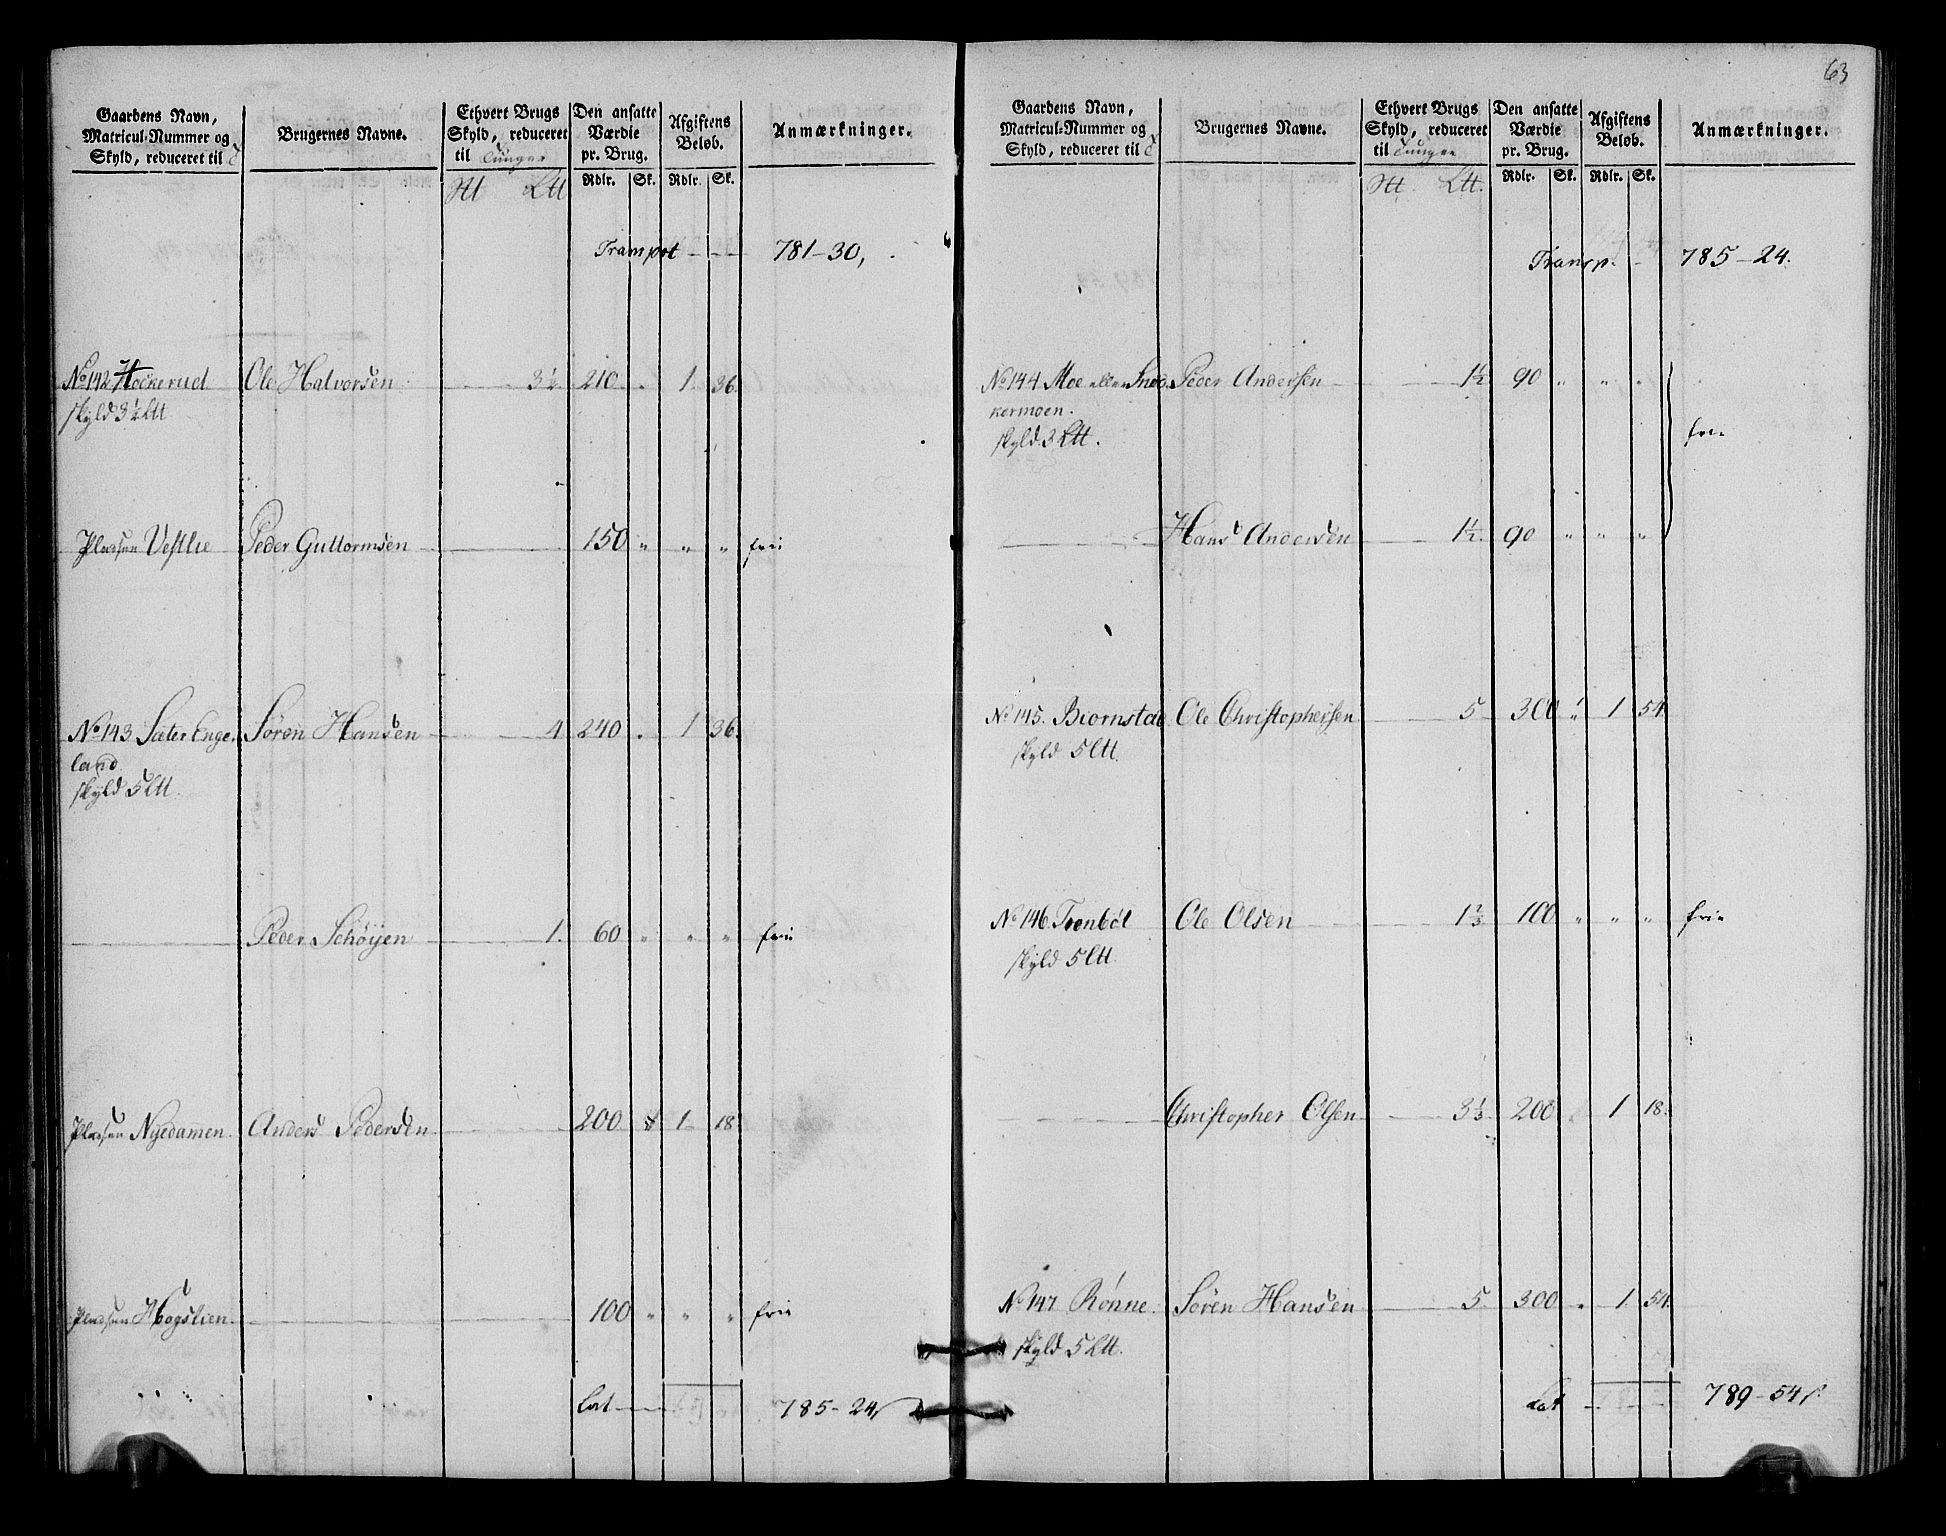 Gaardens Navn,
Matricul-Nummer og
Skyld, reduceret til
Brugernes Navne.
Ethvert Brugs
Skyld, reduceret
til Tunger
Den ansatte
Værdie
pr. Brug.
Afgiftens
Beløb.
Anmærkninger.
Rdlr. Sk. Rdlr. Sk.
Ltt
Transpot - - - 781 - 30,
No 142 Hockerud Ole Halvorsen 3½ 210 . 1 36.
skyld 3½ Ltt
Pladsen Vestlie Peder Guttormsen 150 " " " frii
No 143 Sæter Enge- Sören Hansen 4 240 . 1 36.
land
skyld 5 Ltt.
Peder Schöijen 1. 60 " " " frii
Pladsen Nyedamen Anders Pedersen 200 1 18
Pladsen Hogslien 100 " " " frie
Lat 785 - 24
63
Gaardens Navn,
Matricul-Nummer og
Skyld, reduceret til
Brugernes Navne.
Ethvert Brugs
Skyld, reduceret
til Tunger
Den ansatte
Værdie
pr. Brug.
Afgiftens
Beløb.
Anmærkninger.
Rdlr. Sk. Rdlr. Sk.
Ltt.
Transp. - 785 - 24.
No 144 Moe eller Snee- Peder Andersen 1½ 90 " " "
kermoen.
skyld 3 Ltt.
frie
Hans Andersen 1½ 90 " " "
No 145. Biornstad Ole Christophersen 5 300 1 54
skyld 5 Ltt
No 146 Tronböl Ole Olsen 1⅔ 100 " " " frie
skyld 5 Ltt
Christopher Olsen 3⅓ 200 . 1 18.
No 147 Rönne Sören Hansen 5 300 . 1 54.
skyld 5 Ltt.
Lat - - - 789 - 54